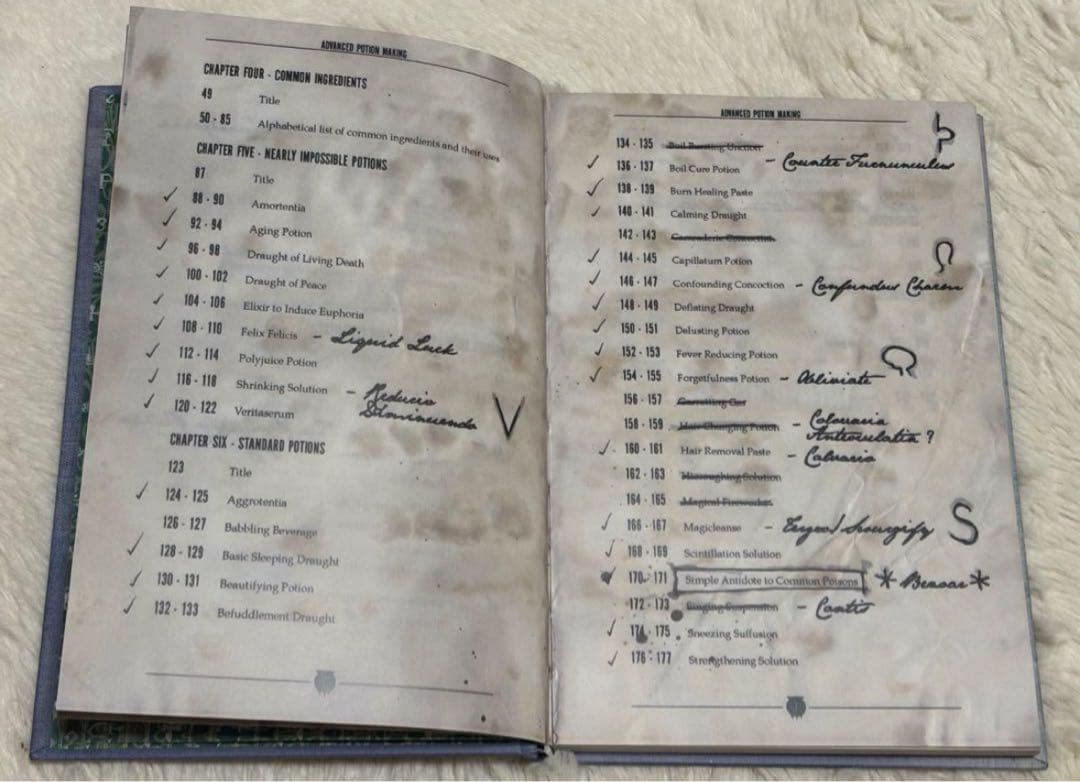 ADVANCED POTION MAKING
CHAPTER FOUR - COMMON INGREDIENTS
49 Title
50 - 85 Alphabetical list of common ingredients and their uses
CHAPTER FIVE - NEARLY IMPOSSIBLE POTIONS
87 Title
✓ 88 - 90 Amortentia
✓ 92 - 94 Aging Potion
✓ 96 - 98 Draught of Living Death
✓ 100 - 102 Draught of Peace
✓ 104 - 106 Elixir to Induce Euphoria
✓ 108 - 110 Felix Felicis - Liquid Luck
✓ 112 - 114 Polyjuice Potion
✓ 116 - 118 Shrinking Solution - Reducio
Diminuendo
✓ 120 - 122 Veritaserum
CHAPTER SIX - STANDARD POTIONS
123 Title
✓ 124 - 125 Aggrotentia
126 - 127 Babbling Beverage
✓ 128 - 129 Basic Sleeping Draught
✓ 130 - 131 Beautifying Potion
✓ 132 - 133 Befuddlement Draught
ADVANCED POTION MAKING
134 - 135 Boil Bursting Unction
✓ 136 - 137 Boil Cure Potion - Counter Furnunculus
✓ 138 - 139 Burn Healing Paste
✓ 140 - 141 Calming Draught
142 - 143 Camaraderie Concoction
✓ 144 - 145 Capillatum Potion
✓ 146 - 147 Confounding Concoction - Confundus Charm
✓ 148 - 149 Deflating Draught
✓ 150 - 151 Delusting Potion
✓ 152 - 153 Fever Reducing Potion
✓ 154 - 155 Forgetfulness Potion - Obliviate
156 - 157 Garrotting Gas
158 - 159 Hair Changing Potion - Colovaria
?
✓ 160 - 161 Hair Removal Paste - Calvario
162 - 163 Hiccoughing Solution
164 - 165 Magical Fireworks
✓ 166 - 167 Magicleanse - Tergeo / Scourgify
✓ 168 - 169 Scintillation Solution
✓ 170 - 171 Simple Antidote to Common Poisons * Bezoar *
172 - 173 Singing Suspension - Cantis
✓ 174 - 175 Sneezing Suffusion
✓ 176 - 177 Strengthening Solution